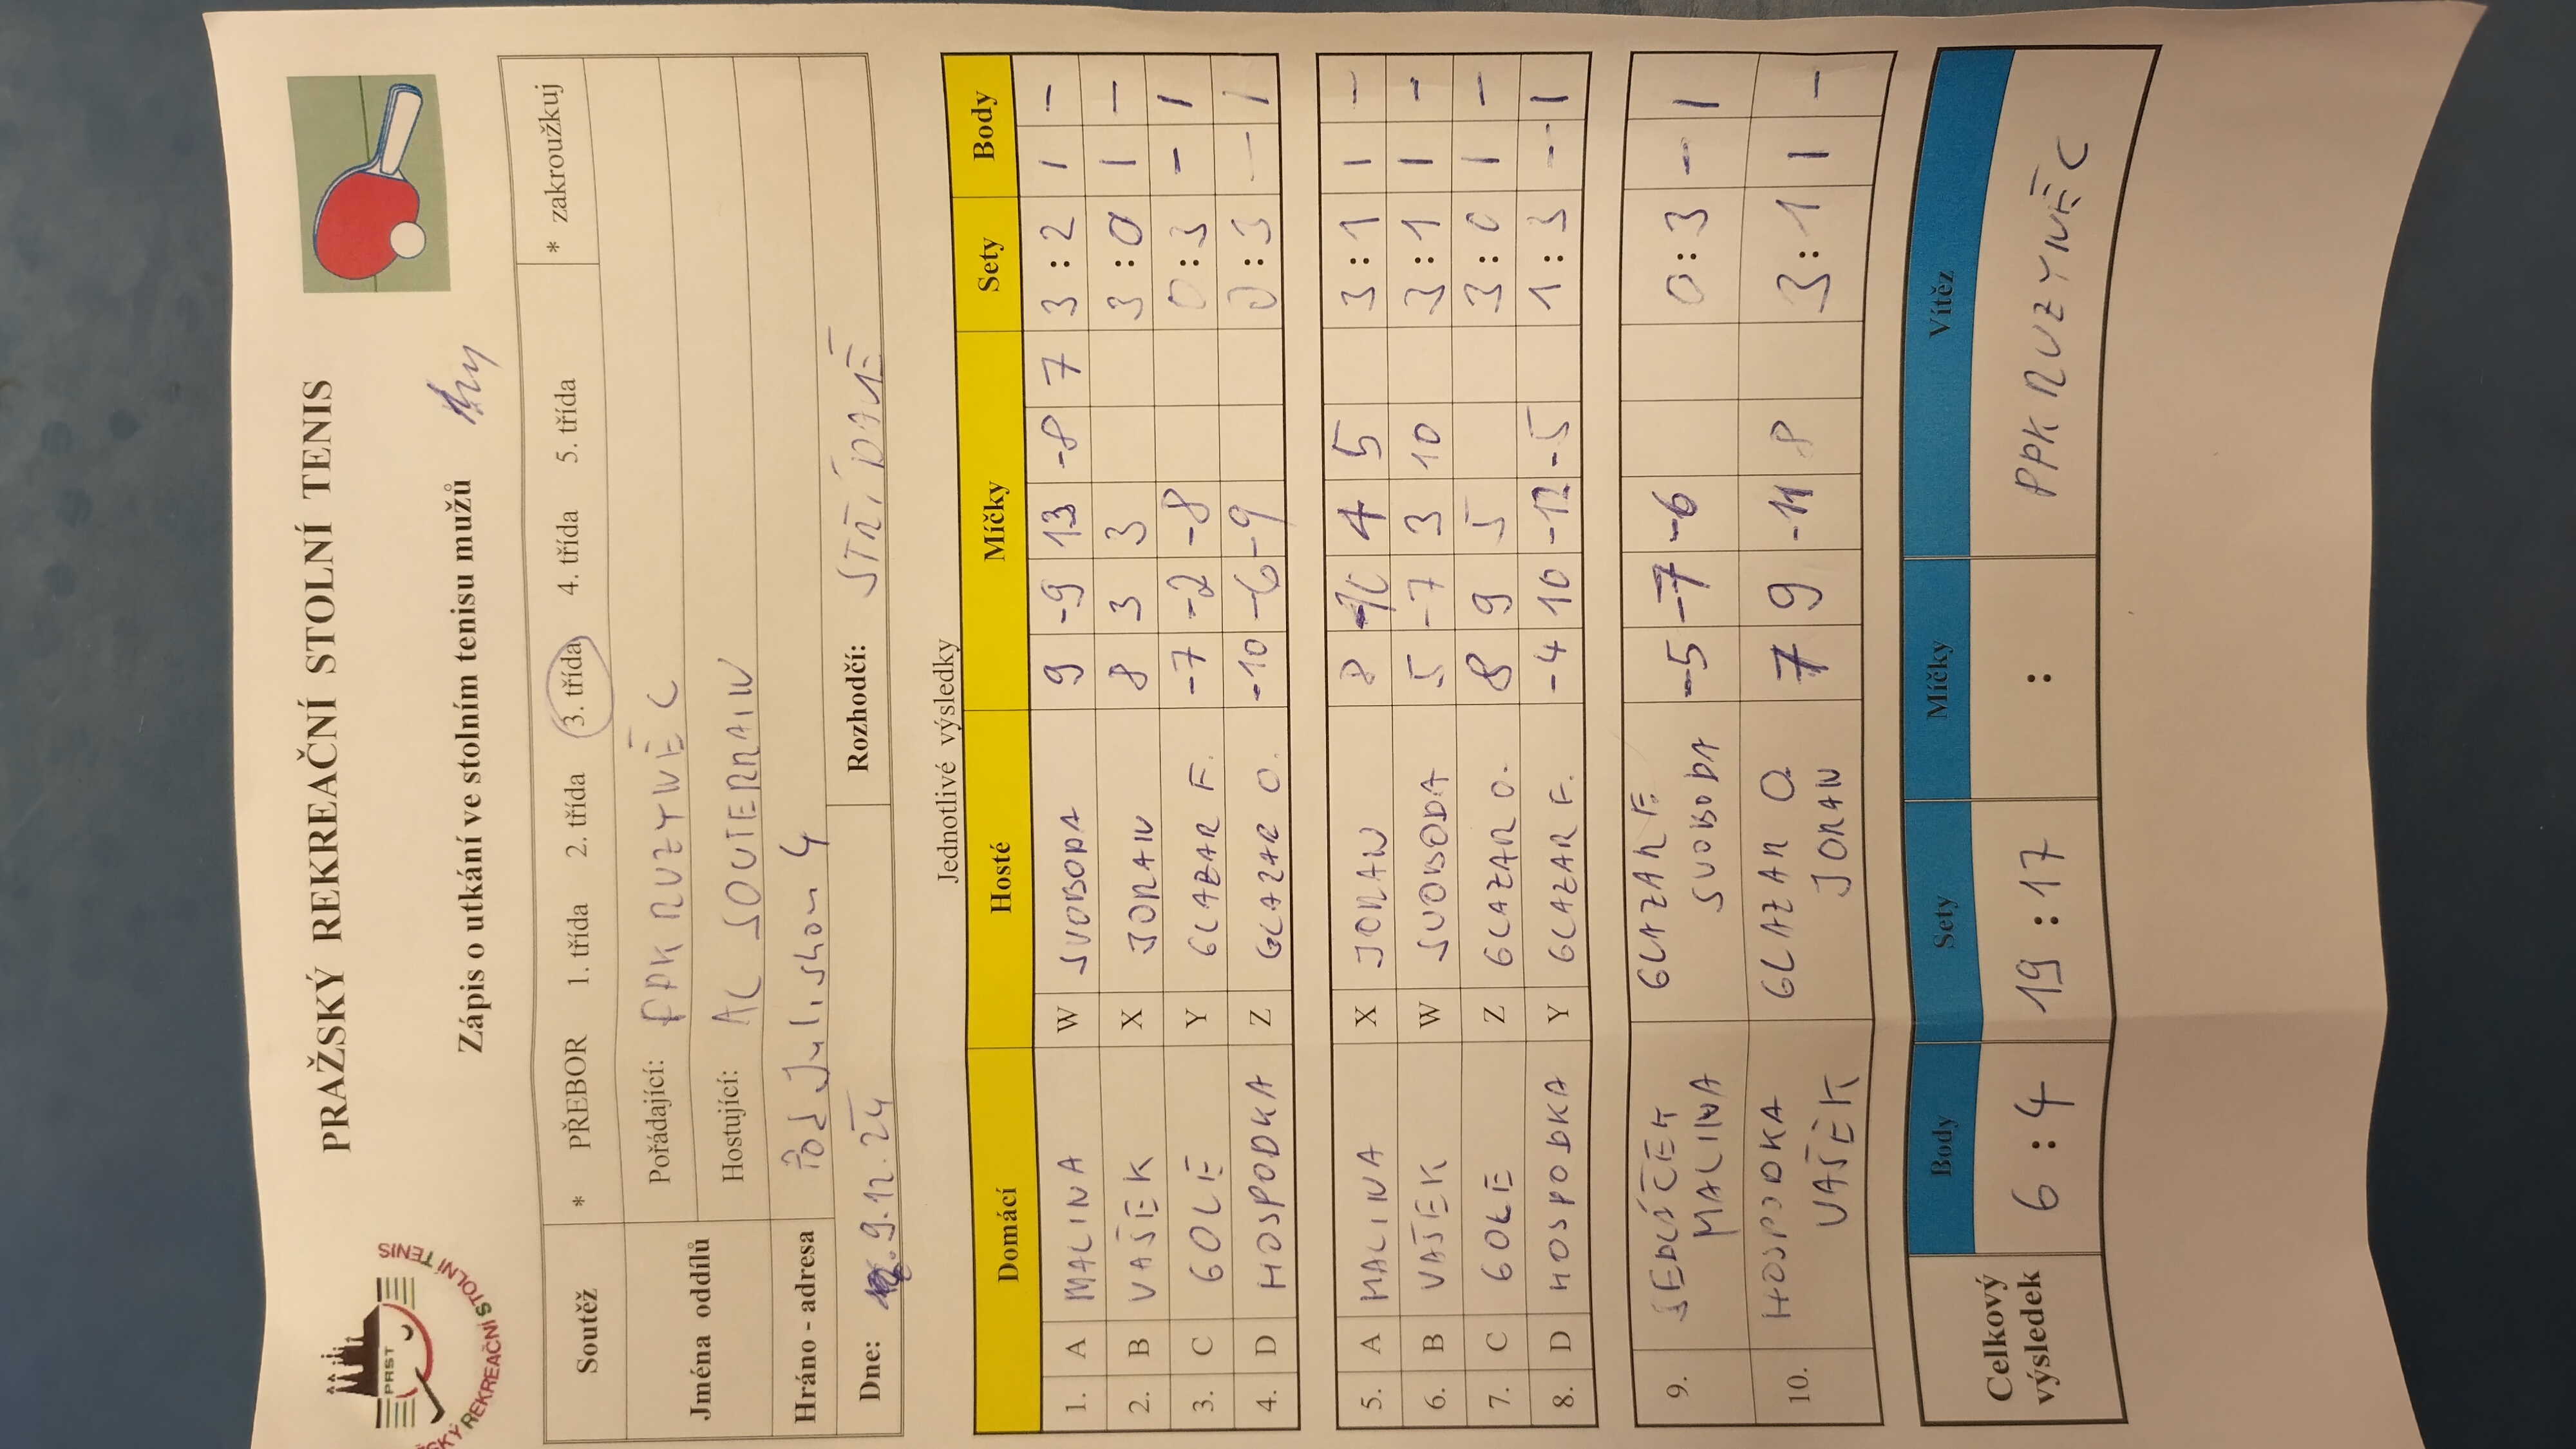 PRAŽSKÝ REKREAČNÍ STOLNÍ TENIS
PRST
REKREAČNÍ STOLNÍ TENIS
Zápis o utkání ve stolním tenisu mužů
Soutěž * PŘEBOR 1. třída 2. třída 3. třída 4. třída 5. třída * zakroužkuj
Jména oddílů Pořádající: PPK RUZYNĚC
Hostující: AC SOUTERRAIN
Hráno - adresa Pod Juliskou 4
Dne: 9.12.24 Rozhodčí: STŘÍDAVĚ
Jednotlivé výsledky
Domácí Hosté Míčky Sety Body
1. A MALINA W SVOBODA 9 -9 13 -8 7 3 : 2 1 -
2. B VAŠEK X JORAN 8 3 3 3 : 0 1 -
3. C GOLE Y GLAZAR F. -7 -2 -8 0 : 3 - 1
4. D HOSPODKA Z GLAZAR O. -10 -6 -9 0 : 3 - 1
5. A MALINA X JORAN 8 4 5 3 : 1 1 -
6. B VAŠEK W SVOBODA 5 -7 3 10 3 : 1 1 -
7. C GOLE Z GLAZAR O. 8 9 5 3 : 0 1 -
8. D HOSPODKA Y GLAZAR F. -4 10 -12 -5 1 : 3 - 1
9. SEDLÁČEK GLAZAR F. -5 -7 -6 0 : 3 - 1
MALINA SVOBODA
10. HOSPODKA GLAZAR O 7 9 -11 8 3 : 1 1 -
VAŠEK JORAN
Celkový výsledek Body Sety Míčky Vítěz
6 : 4 19 : 17 : PPK RUZYNĚC